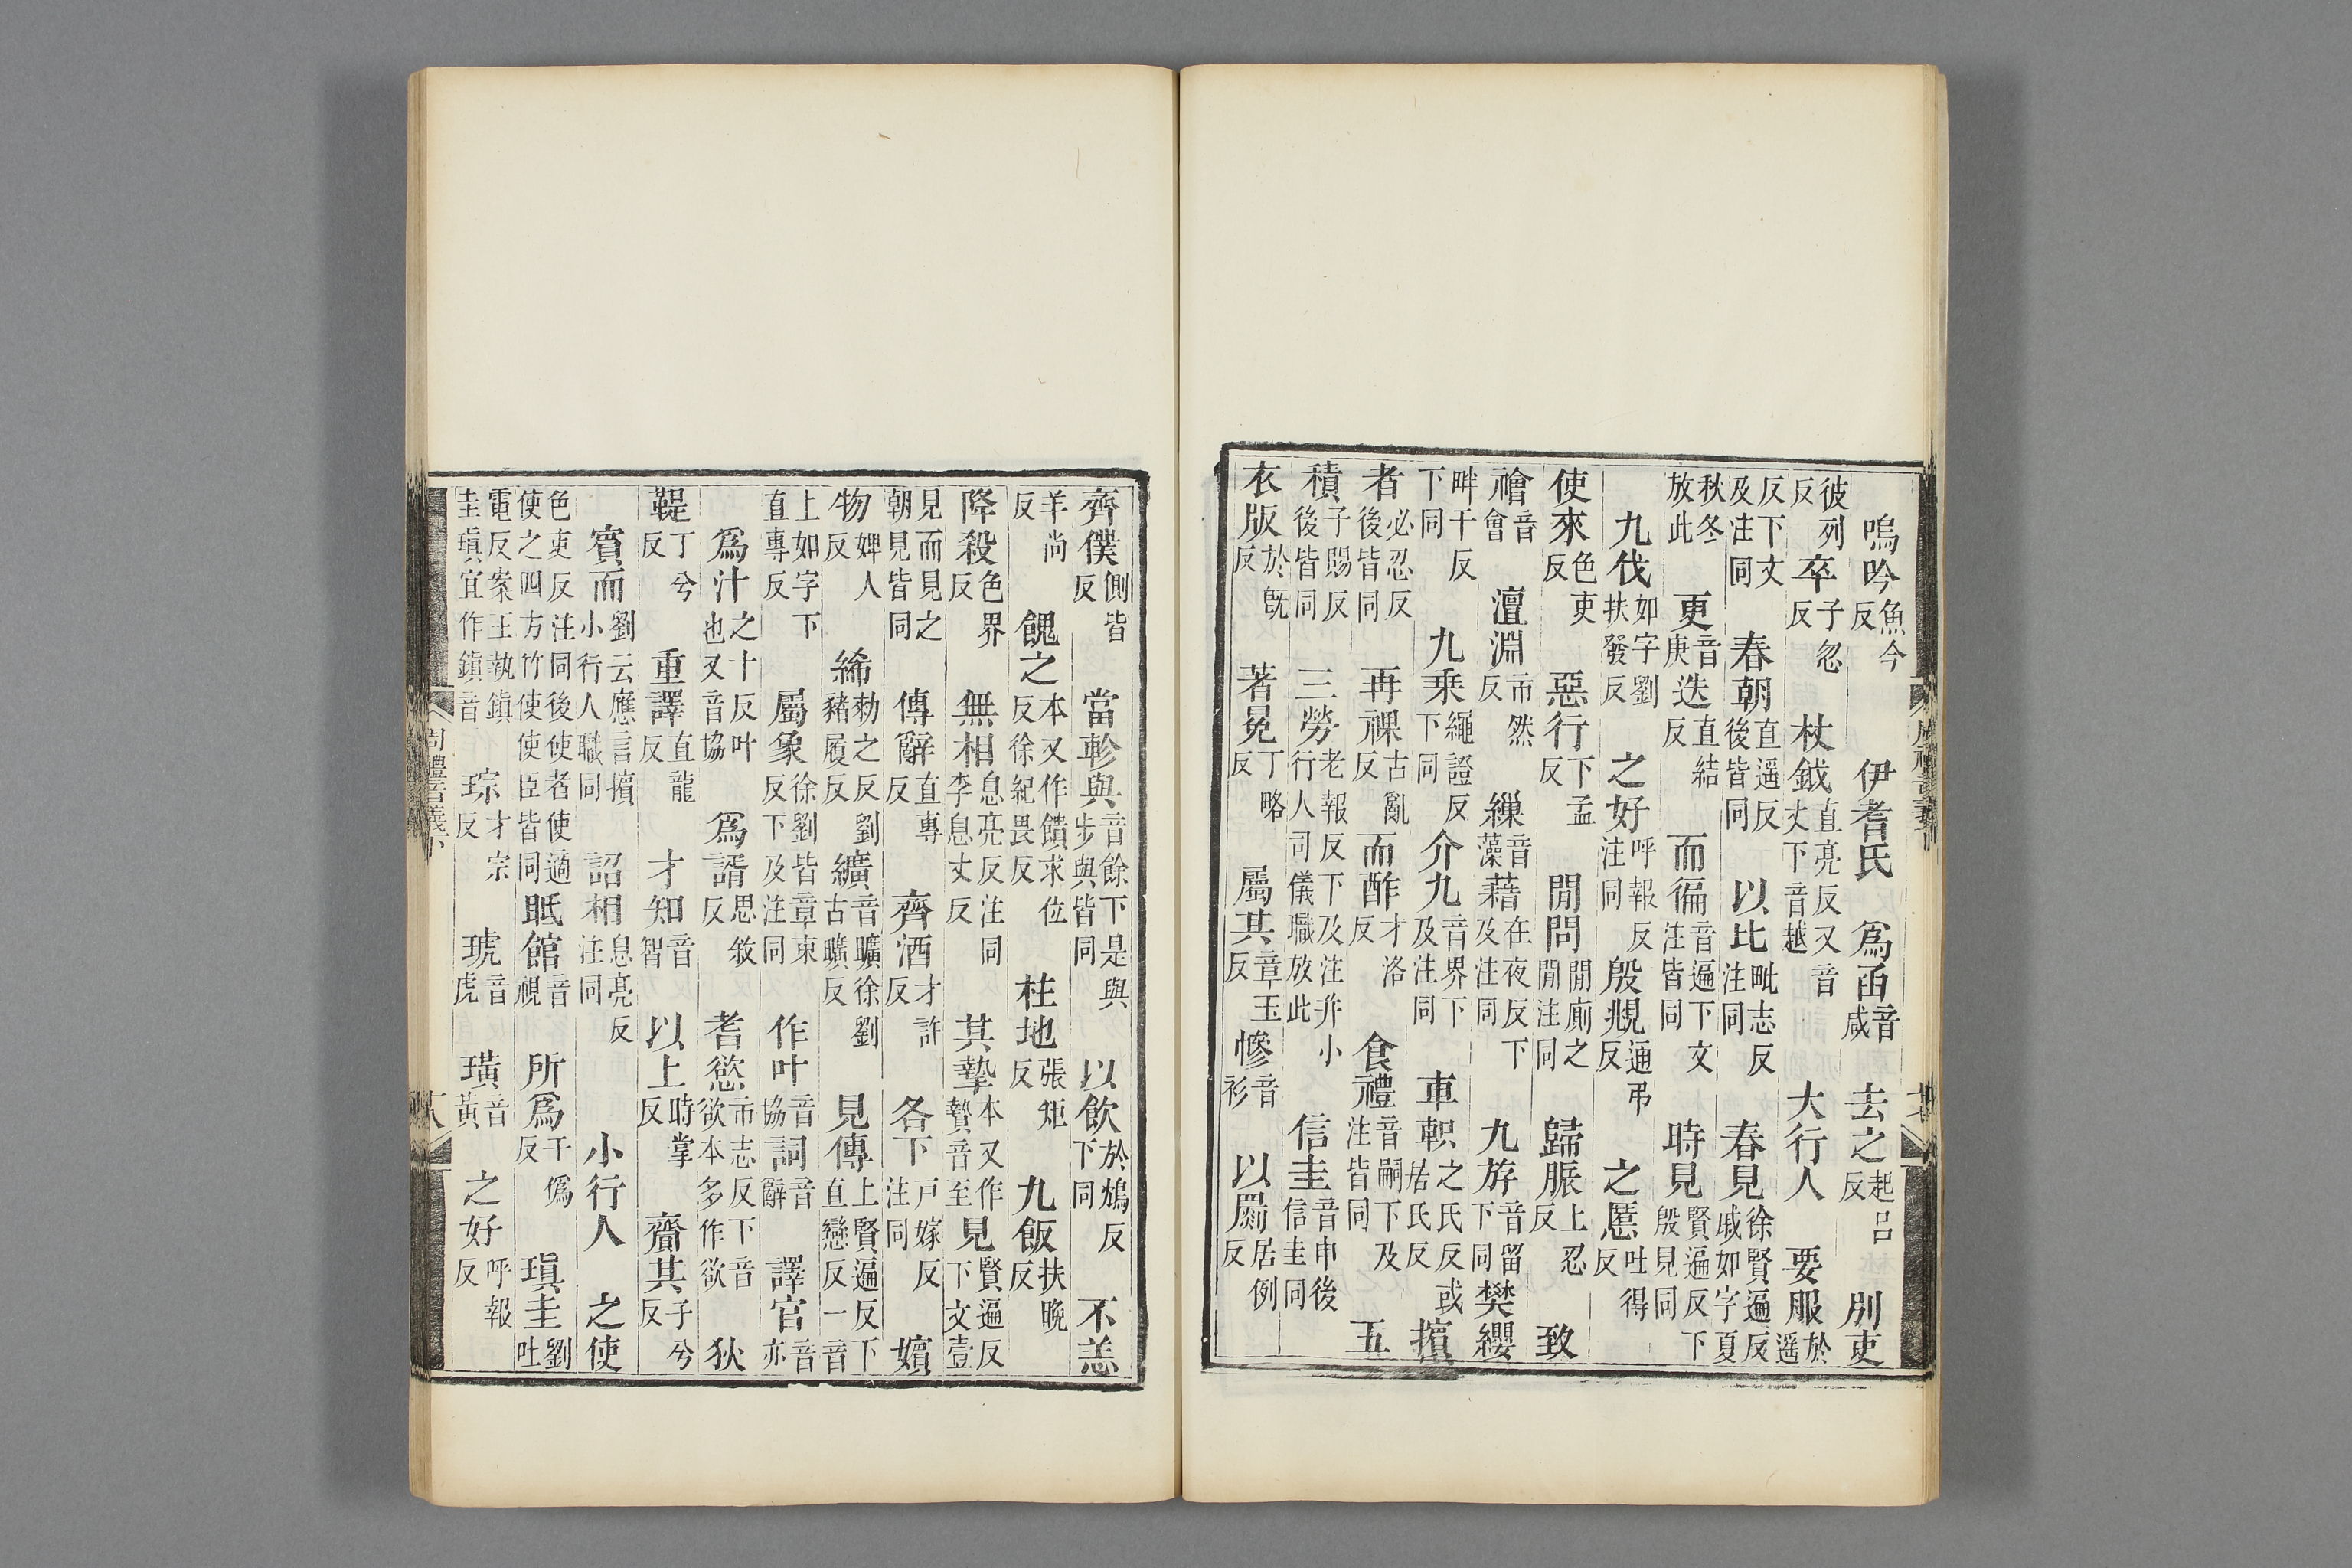 嗚吟魚今反 伊耆氏 爲函音咸 去之起呂反 別吏
彼列反 卒子忽反 杖鉞直亮反又音丈下音越 大行人 要服於遥
反下文及注同 春朝直遥反後皆同 以比毗志反注同 春見徐賢遍反戚如字夏
秋冬放此 更音庚迭直結反 而徧音遍下文注皆同 時見賢遍反下殷見同
九伐如字劉扶發反 之好呼報反注同 殷覜通弔反 之慝吐得反
使來色吏反 惡行下孟反 閒問閒廁之閒注同 歸脤上忍反 致
禬音會 澶淵市然反 繅音藻藉在夜反下及注同 九斿音留下同 樊纓
畔干反下同 九乘繩證反下同 介九音界下及注同 車軹之氏反或居氏反 擯
者必忍反後皆同 再祼古亂反 而酢才洛反 食禮音嗣下及注皆同 五
積子賜反後皆同 三勞老報反下及注并小行人司儀職放此 信圭音申後信圭同
衣版於旣反 著冕丁略反 屬其章玉反 幓音衫 以罽居例反
齊僕側皆反 當軫與音餘下是與步與皆同 以飲於鴆反下同 不恙
羊尚反 餽之本又作饋求位反徐紀畏反 柱地張矩反 九飯扶晚反
降殺色界反 無相息亮反注同李息丈反 其摯本又作贄音至 見賢遍反下文壹
見而見之朝見皆同 傳辭直專反 齊酒才許反 各下戶嫁反注同 嬪
物婢人反 絺勑之反劉豬履反 纊音曠徐劉古曠反 見傳上賢遍反下直戀反一音
上如字下直專反 屬象徐劉皆章束反下及注同 作叶音協 詞音辭 譯官音亦
爲汁之十反叶也又音協 爲諝思敘反 耆慾市志反下音欲本多作欲 狄
鞮丁兮反 重譯直龍反 才知音智 以上時掌反 齎其子兮反
賓而劉云應言擯小行人職同 詔相息亮反注同 小行人 之使
色吏反注同後使者使適使之四方竹使使臣皆同 眂館音視 所爲于僞反 瑱圭劉吐
電反案王執鎮圭瑱宜作鎮音 琮才宗反 琥音虎 璜音黃 之好呼報反
周禮音義下 十八